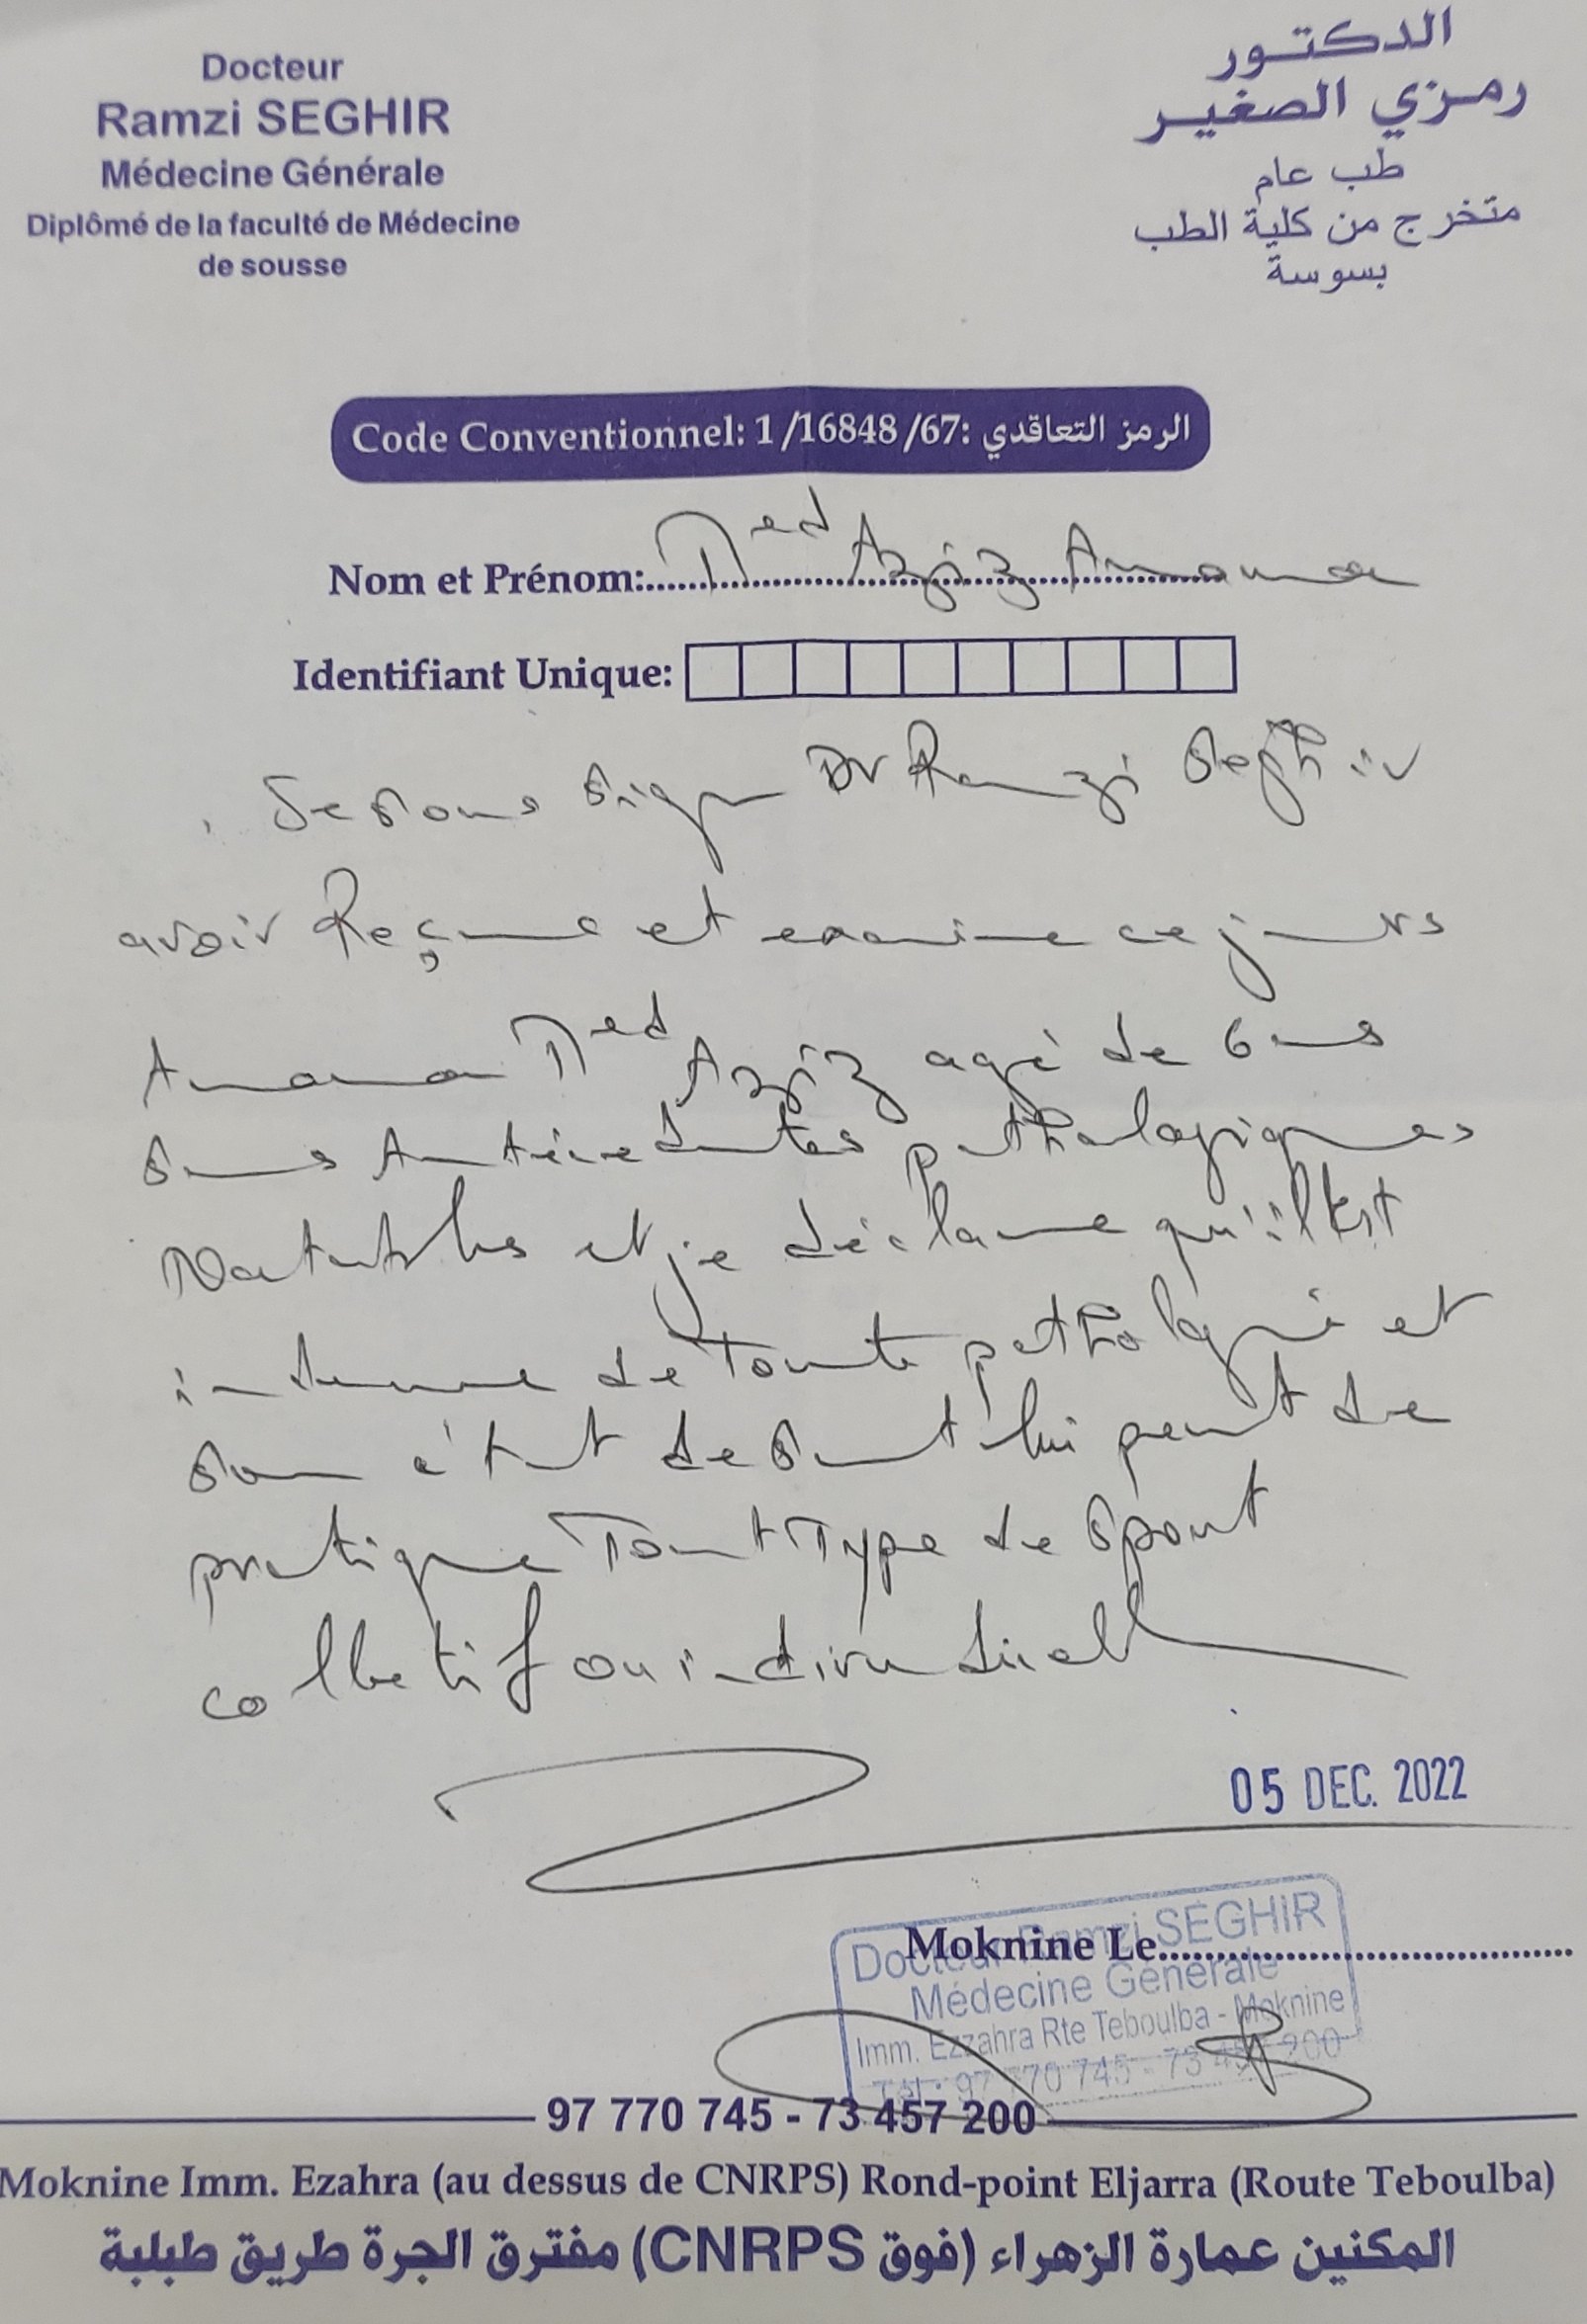 Docteur
Ramzi SEGHIR
Médecine Générale
Diplômé de la faculté de Médecine
de sousse
الدكتور
رمزي الصغير
طب عام
متخرج من كلية الطب
بسوسة
Code Conventionnel: 1/16848/67: الرمز التعاقدي
Nom et Prénom: Med Aziz Amama
Identifiant Unique:
Je sous signe Dr Ramzi Seghir
avoir Reçue et examine ce jours
Amama Med Aziz agé de 6 ans
sans Antécedentes pathologiques
Notables et je déclare qu'il est
indemne de toute pathologie et
son état de sant lui peut de
pratique Tout Type de Sport
collectif ou individuel
05 DEC. 2022
Moknine Le
Docteur Ramzi SEGHIR
Médecine Générale
Imm. Ezzahra Rte Teboulba - Moknine
Tél : 97 770 745 - 73 457 200
97 770 745 - 73 457 200
Moknine Imm. Ezahra (au dessus de CNRPS) Rond-point Eljarra (Route Teboulba)
المكنين عمارة الزهراء (فوق CNRPS) مفترق الجرة طريق طبلبة